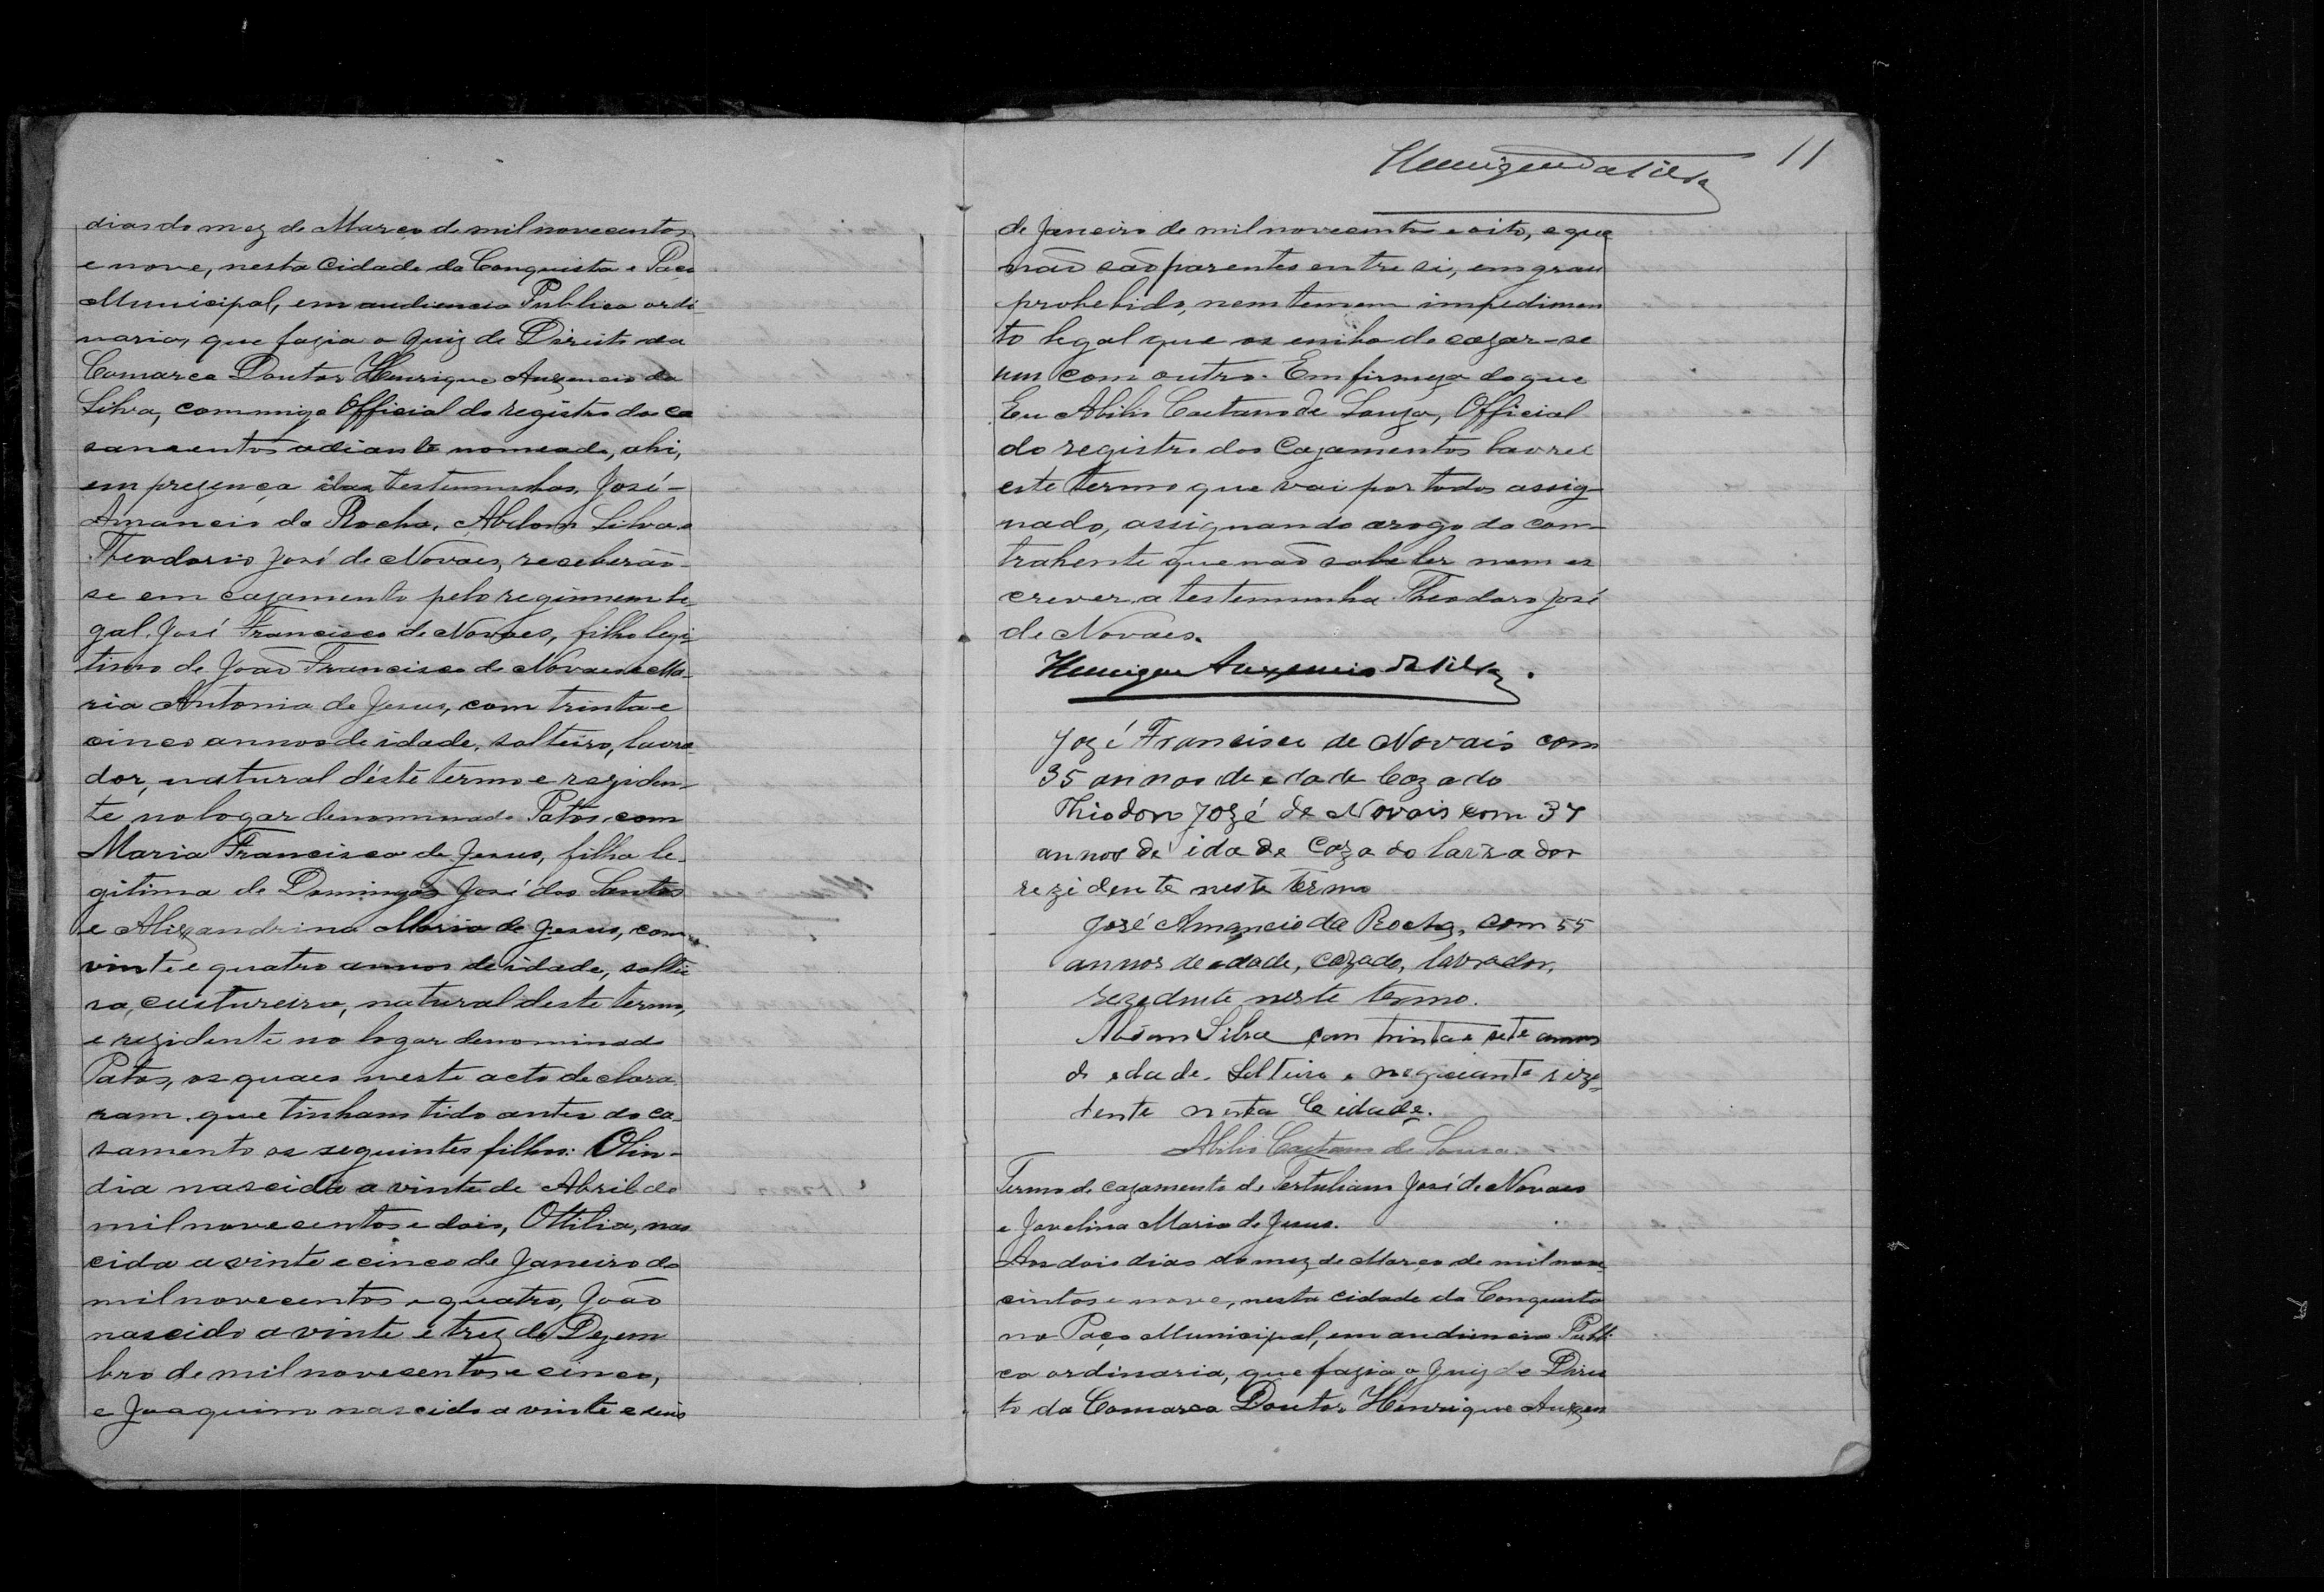 dias do mez de Março de mil novecentos
e nove, nesta Cidade da Conquista e Paço
Municipal, em audiencia Publica ordi-
naria, que fazia o Juiz de Direito da
Comarca Doutor Henrique Auxencio da
Silva, commigo Official do registro dos ca
samentos adiante nomeado, ahi,
em prezença das testemunhas, José-
Amancio da Rocha, Abdom Silva e
Theodorio José de Novaes, receberão-
se em cazamento pelo regimmem le-
gal. José Francisco de Novaes, filho legi-
timo de João Francisco de Novaes e Ma-
ria Antonia de Jesus, com trinta e
cinco annos de idade, solteiro, lavra-
dor, natural déste termo e reziden-
te no logar denominado Patos, com
Maria Francisca de Jesus, filha le-
gitima de Domingos José dos Santos
e Alexandrina Maria de Jesus, com
vinte e quatro annos de idade, soltei
ra, custureira, natural deste termo,
e rezidente no logar denominado
Patos, os quaes neste acto declara
ram. que tinham tido antes do ca-
samento os seguintes filhos: Olin-
dia nascida a vinte de Abril de
mil novecentos e dois, Ottilia, nas
cida a vinte e cinco de Janeiro de
mil novecentos e quatro, João
nascido a vinte e trez de Dezem
bro de mil novecentos e cinco,
e Joaquim nascido a vinte e seis
11
de Janeiro de mil novecentos e oito, e que
não são parentes entre si, em grau
prohebido, nem temem impedimen
to legal que os eniba de cazar-se
um com outro. Em firmeza do que
Eu Abilio Caetano de Souza, Official
do registro dos Cazamentos lavrei
este termo que vai por todos assig-
nado, assignando arogo da com-
trahente que não sabe ler nem es
crever, a testemunha Theodoro José
de Novaes.
Henrique Auxencio da Silva.
Jozé Francisco de Novais com
35 annos de edade Cazado
Thiodoro Jozé de Novais com 37
annos de idade Cazado lavrador
rezidente neste termo
José Amancio da Rocha, com 55
annos de edade, cazado, lavrador,
rezedente neste termo.
Abdom Silva com trinta e sete annos
de edade. Solteiro e negociante rize-
dente nesta Cidade.
Abilio Caetano de Souza.
Termo de cazamento de Tertuliano José de Novaes
e Jovelina Maria de Jesus.
Aos dois dias do mez de Março de mil nove-
cintos e nove, nesta Cidade da Conquista
no Paço Municipal, em audiencia Publi
ca ordinaria, que fazia o Juiz de Direi
to da Comarca Doutor Henrique Auxen